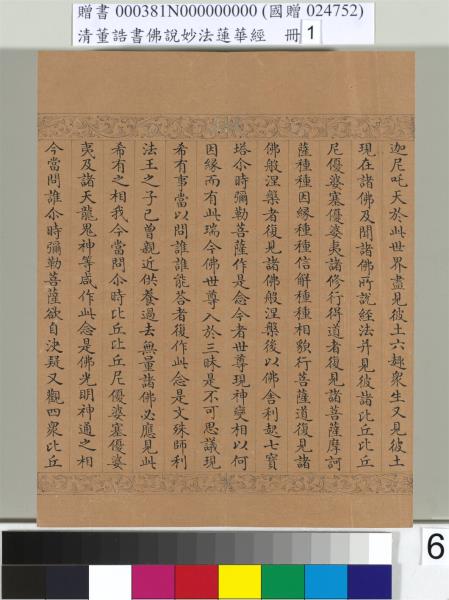 贈書 000381N000000000 (國贈 024752)
清董誥書佛說妙法蓮華經 冊 1
迦尼吒天於此世界盡見彼土六趣眾生又見彼土
現在諸佛及聞諸佛所說經法并見彼諸比丘比丘
尼優婆塞優婆夷諸修行得道者復見諸菩薩摩訶
薩種種因緣種種信解種種相貌行菩薩道復見諸
佛般涅槃者復見諸佛般涅槃後以佛舍利起七寶
塔尒時彌勒菩薩作是念今者世尊現神變相以何
因緣而有此瑞今佛世尊入於三昧是不可思議現
希有事當以問誰誰能答者復作此念是文殊師利
法王之子已曾親近供養過去無量諸佛必應見此
希有之相我今當問尒時比丘比丘尼優婆塞優婆
夷及諸天龍鬼神等咸作此念是佛光明神通之相
今當問誰尒時彌勒菩薩欲自決疑又觀四眾比丘
6